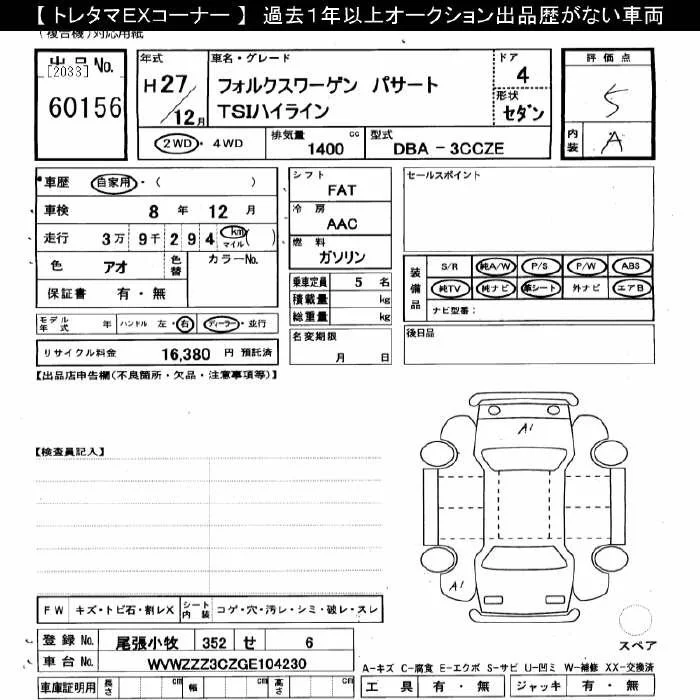 【 トレタマEXコーナー 】 過去1年以上オークション出品歴がない車両
(複合機)対応用紙
出品No.
[2033]
60156
年式
H27/12月
車名・グレード
フォルクスワーゲン パサート
TSIハイライン
ドア
4
形状
セダン
2WD・4WD
排気量 1400 cc
型式 DBA - 3CCZE
評価点
5
内装
A
車歴 自家用・( )
車検 8年 12月
走行 3万9千294 km マイル ( )
色 アオ 色替 カラーNo.
保証書 有・無
モデル年式 年 ハンドル 左・右 ディーラー・並行
リサイクル料金 16,380 円 預託済
シフト
FAT
冷房
AAC
燃料
ガソリン
乗車定員 5 名
積載量 kg
総重量 kg
名変期限
月 日
セールスポイント
装備品
S/R 純A/W P/S P/W ABS
純TV 純ナビ 革シート 外ナビ エアB
ナビ型番:
後日品
【出品店申告欄(不良箇所・欠品・注意事項等)】
【検査員記入】
A1
A1
FW キズ・トビ石・割レX シート内装 コゲ・穴・汚レ・シミ・破レ・スレ
スペア
登録No. 尾張小牧 352 せ 6
車台No. WVWZZZ3CZGE104230
車庫証明用 長さ cm 幅 cm 高さ cm
A-キズ C-腐食 E-エクボ S-サビ U-凹ミ W-補修 XX-交換済
工具 有・無 ジャッキ 有・無